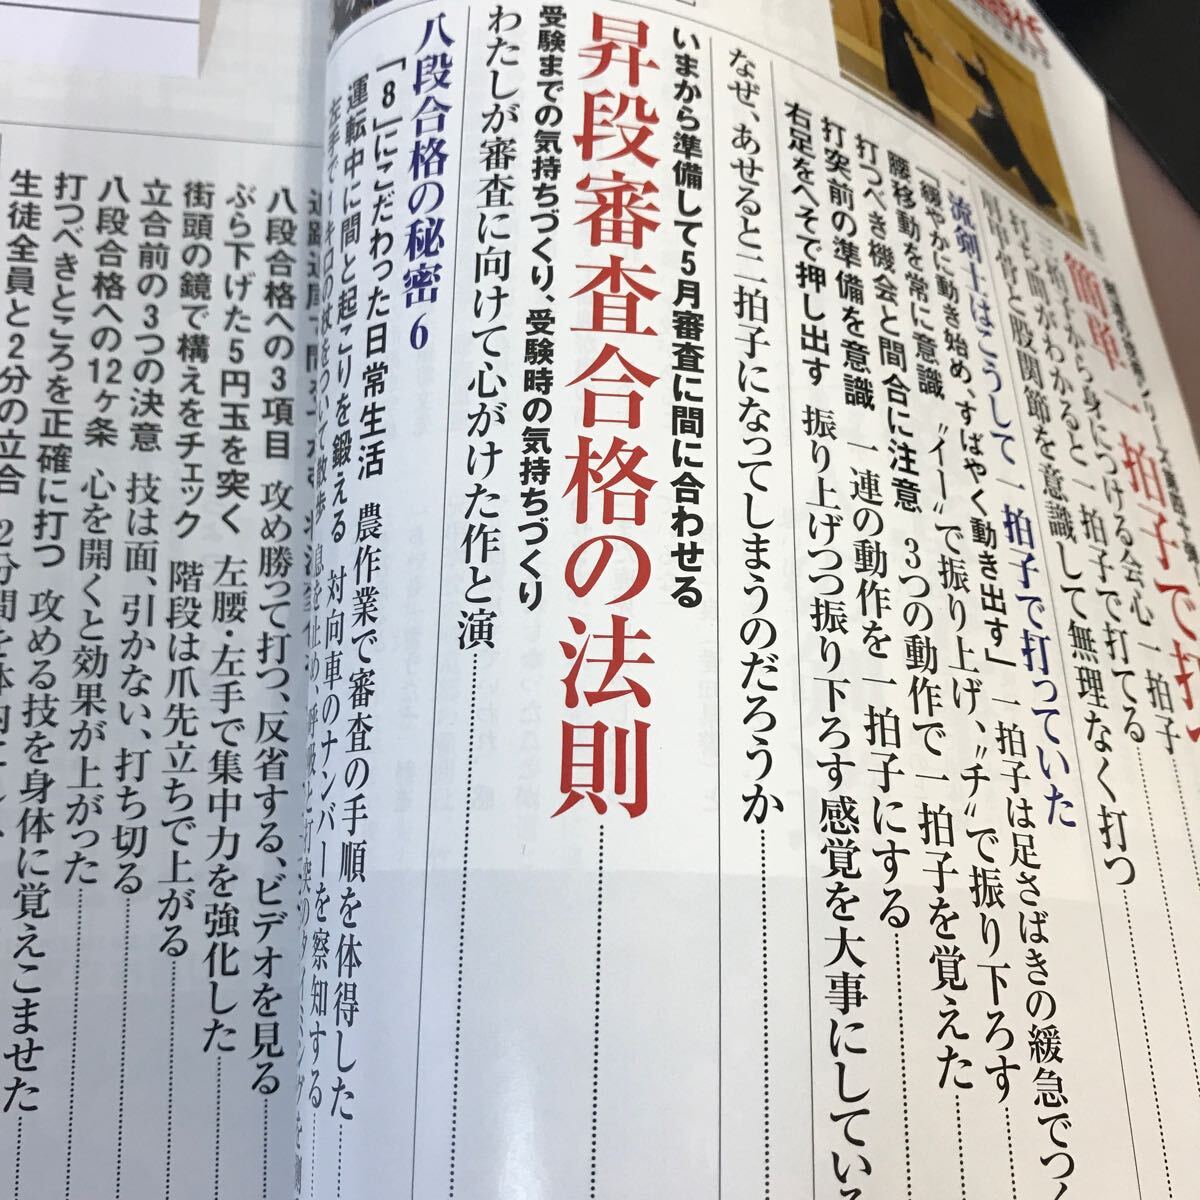 簡単 一拍子で打
三拍子から身につける会心一拍子
打ち間がわかると一拍子で打てる
肩甲骨と股関節を意識して無理なく打つ
一流剣士はこうして一拍子で打っていた
「緩やかに動き始め、すばやく動き出す」 一拍子は足さばきの緩急でつく
腰移動を常に意識 “イー”で振り上げ、“チ”で振り下ろす
打つべき機会と間合に注意 3つの動作で一拍子を覚えた
打突前の準備を意識 一連の動作を一拍子にする
右足をへそで押し出す 振り上げつつ振り下ろす感覚を大事にしている
なぜ、あせると二拍子になってしまうのだろうか
いまから準備して5月審査に間に合わせる
昇段審査合格の法則
受験までの気持ちづくり、受験時の気持ちづくり
わたしが審査に向けて心がけた作と演
八段合格の秘密6
「8」にこだわった日常生活 農作業で審査の手順を体得した
運転中に間と起こりを鍛える 対向車のナンバーを察知する
八段合格への3項目 攻め勝って打つ、反省する、ビデオを見る
ぶら下げた5円玉を突く 左腰・左手で集中力を強化した
街頭の鏡で構えをチェック 階段は爪先立ちで上がる
立合前の3つの決意 技は面、引かない、打ち切る
八段合格への12ヶ条 心を開くと効果が上がった
打つべきところを正確に打つ 攻める技を身体に覚えこませた
生徒全員と2分の立合 2分間を体内に